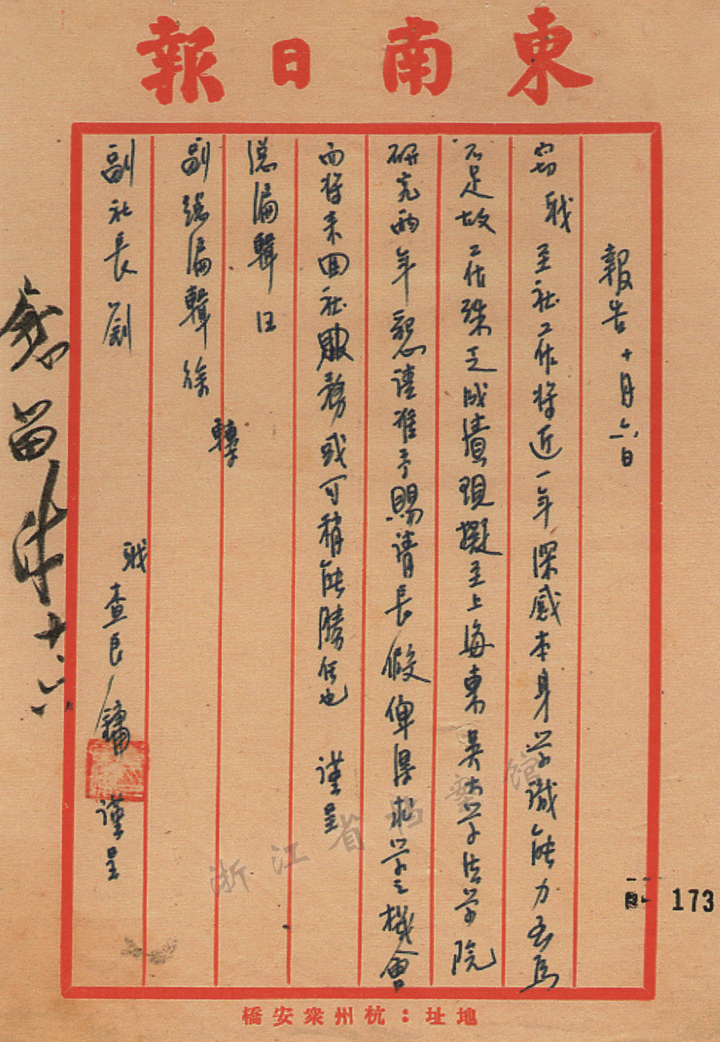 東南日報
報告 十月六日
竊職至社工作將近一年深感本身学識能力至為
不足故工作殊乏成績現擬至上海東吳大学法学院
研究兩年懇請准予賜請長假俾得求学之機會
而將來回社服務或可稍能勝任也 謹呈
總編輯汪
副總編輯徐 轉
副社長劉
職 查良鏞 謹呈
173
浙江省档案馆
地址：杭州衆安橋